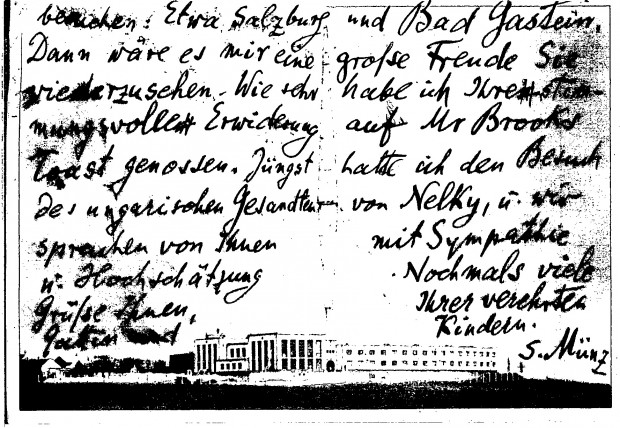 besuchen: Etwa Salzburg und Bad Gastein.
Dann wäre es mir eine große Freude Sie
wiederzusehen. Wie sehr habe ich Ihre stim-
mungsvolle Erwiderung auf Mr Brooks
Toast genossen. Jüngst hatte ich den Besuch
des ungarischen Gesandten von Nelky, u. wir
sprachen von Ihnen mit Sympathie
u. Hochschätzung Nochmals viele
Grüße Ihnen, Ihrer verehrten
Gattin und Kindern.
S. Münz